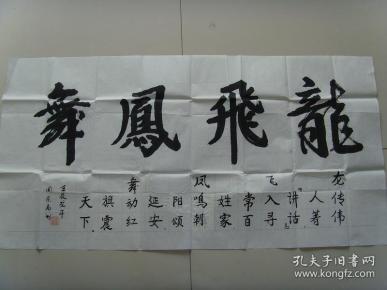 龍飛鳳舞
龙传伟
人
讲话
飞入寻
常百
姓家
凤鸣朝
阳颂
延安
舞动红
旗震
天下
孔夫子旧书网